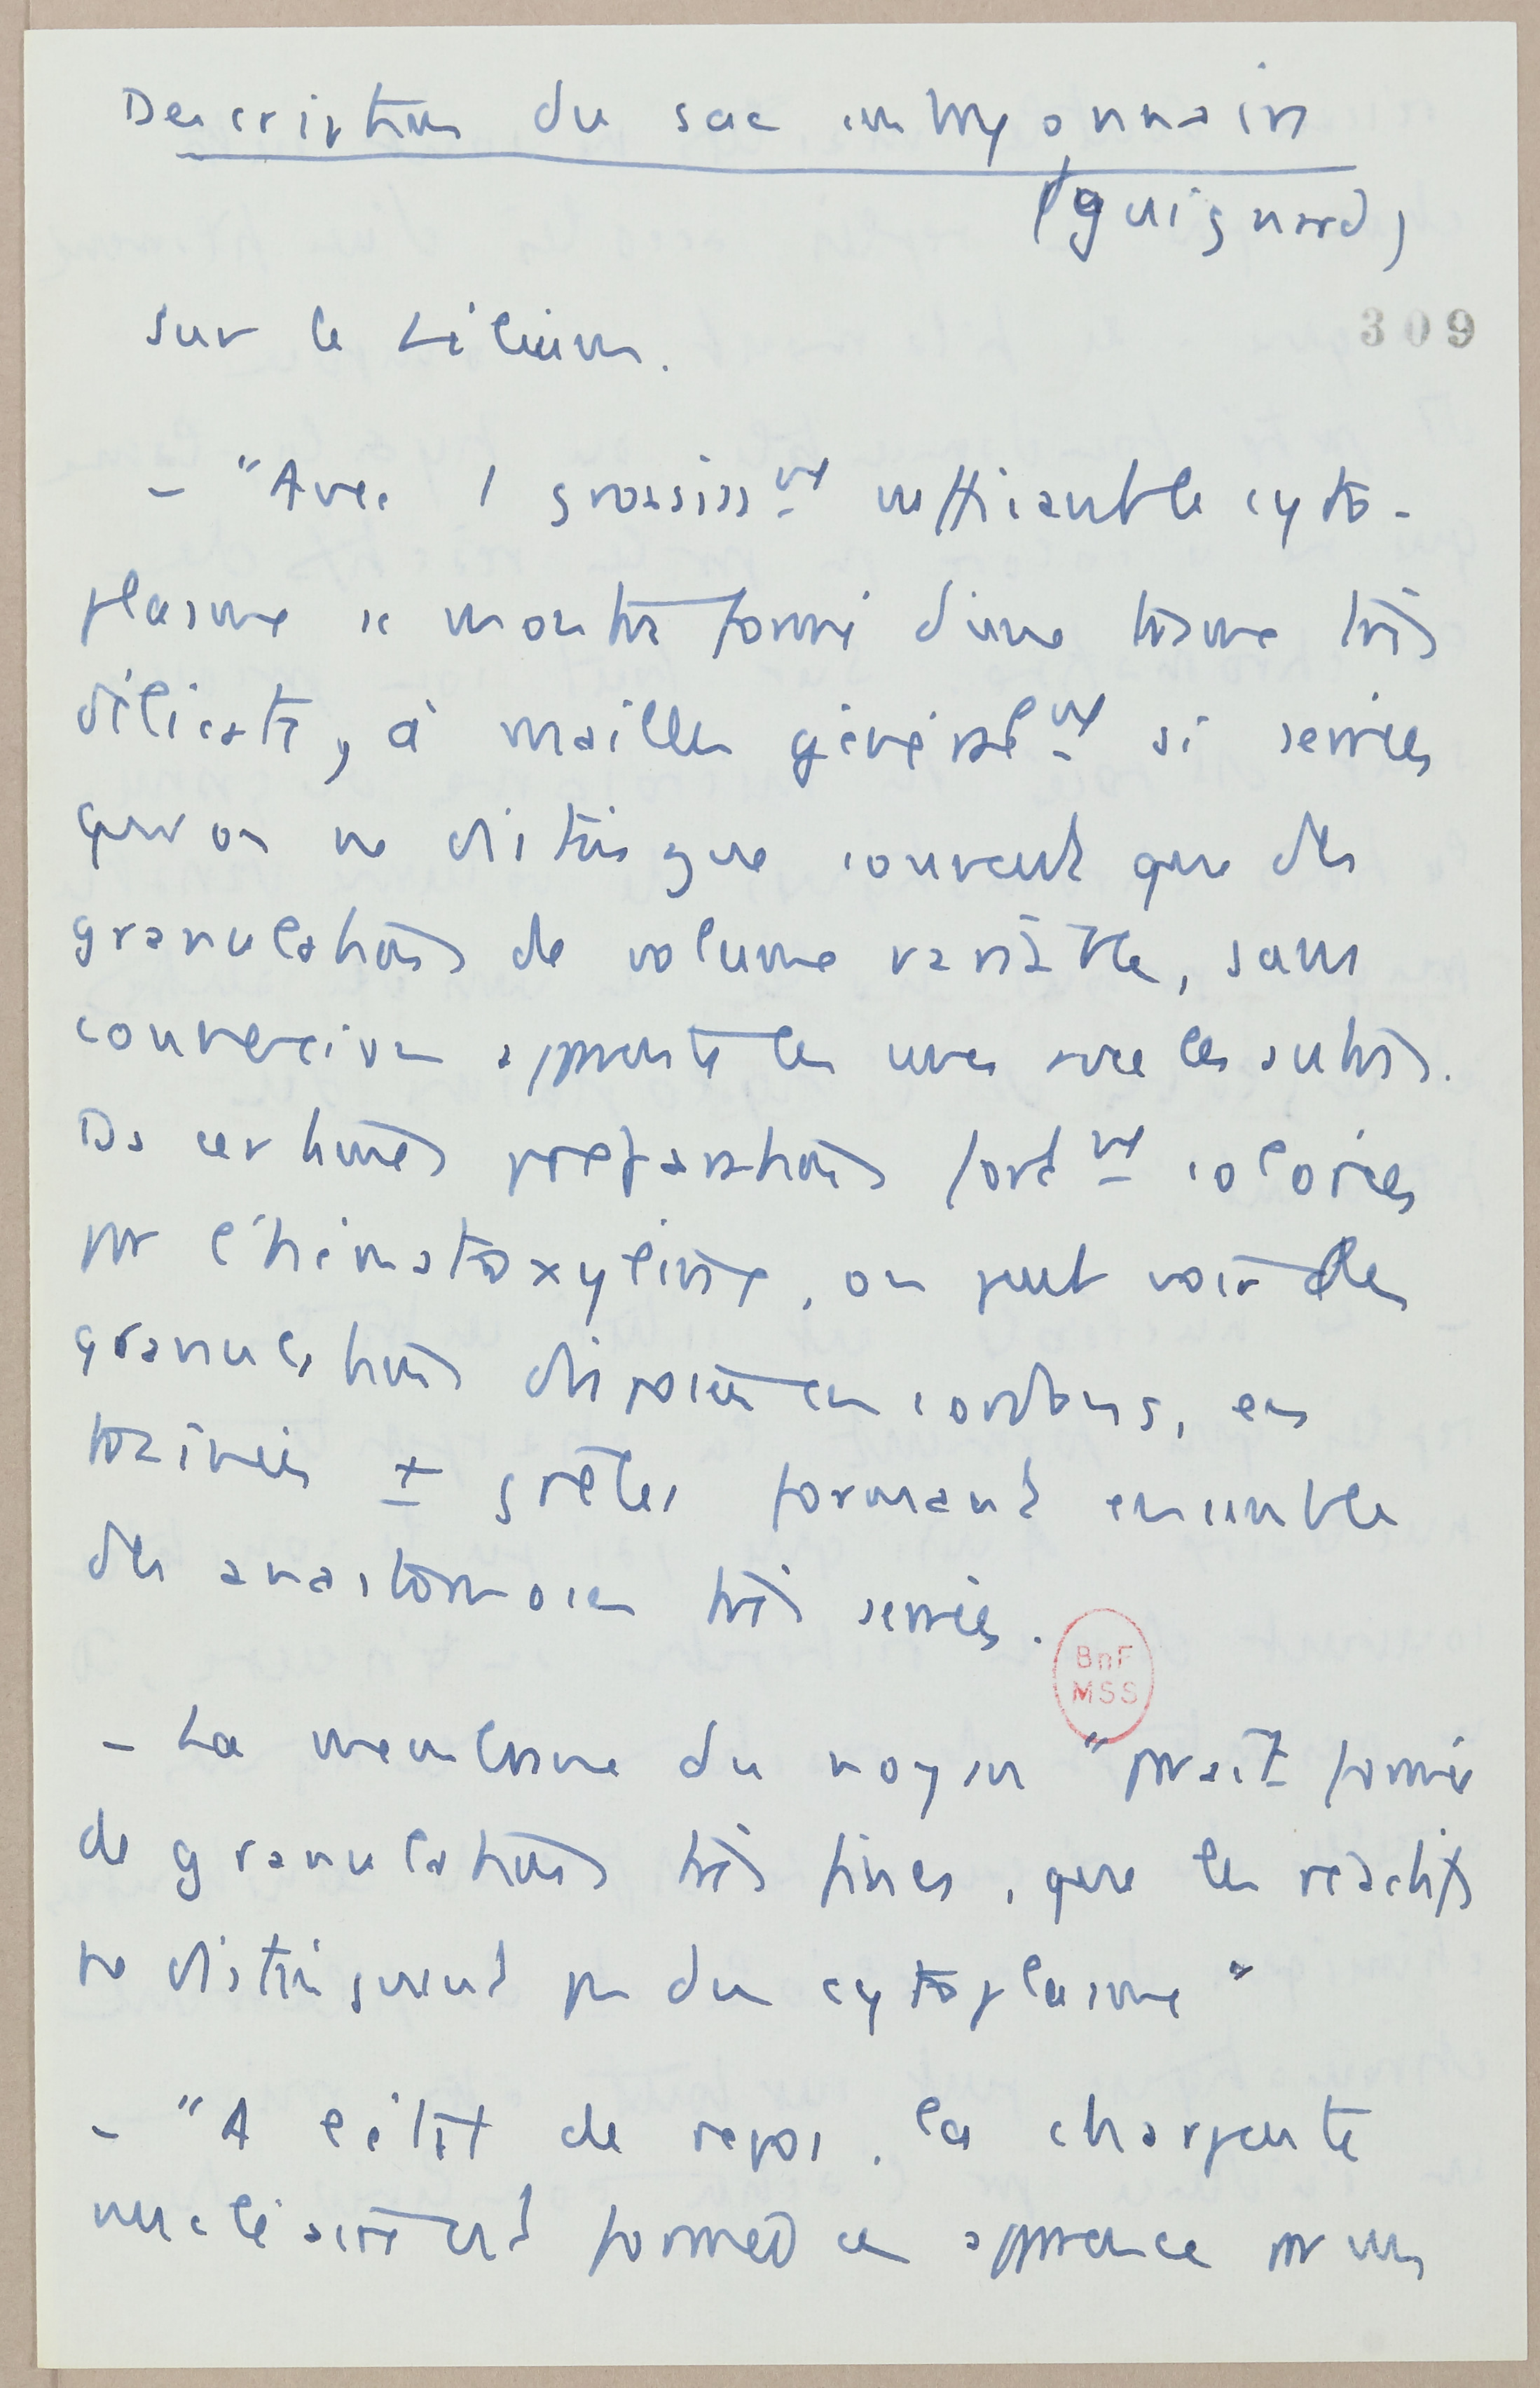 Description du sac embryonnaire
(Guignard)
309
Sur le Lilium.
- "Avec 1 grossiss.nt suffisant le cyto-
plasme se montre formé d'une trame très
délicate, à mailles généralnt si serrées
qu'on ne distingue souvent que des
granulations de volume variable, sans
connexion apparente les unes avec les autres.
Ds certaines préparations fortnt colorées
par l'hématoxyline, on peut voir des
granulations disposées en cordons, en
traînées ± grêles formant ensemble
des anastomoses très serrées.
BnF
MSS
- La membrane du noyau "paraît formée
de granulations très fines, que les réactifs
ne distinguent pas du cytoplasme"
- "A l'état de repos, la charpente
nucléaire est formée en apparence par un